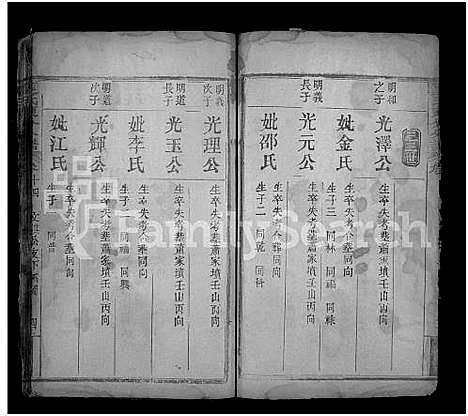 明和之子
光澤公
生卒失考葬蕭家墳壬山丙向
妣金氏
生卒失考合葬同向
生子三 同林 同福 同祿
明義長子
光元公
生卒失考葬蕭家墳壬山丙向
妣邵氏
生卒失考合葬同向
生子二 同乾 同科
明義次子
光理公
生卒失考葬蕭家墳壬山丙向
明道長子
光玉公
生卒失考葬蕭家墳壬山丙向
妣李氏
生卒失考合葬同向
生子二 同福 同興
明道次子
光輝公
生卒失考葬蕭家墳壬山丙向
妣江氏
生卒失考合葬同向
生子一 同普
FamilySearch